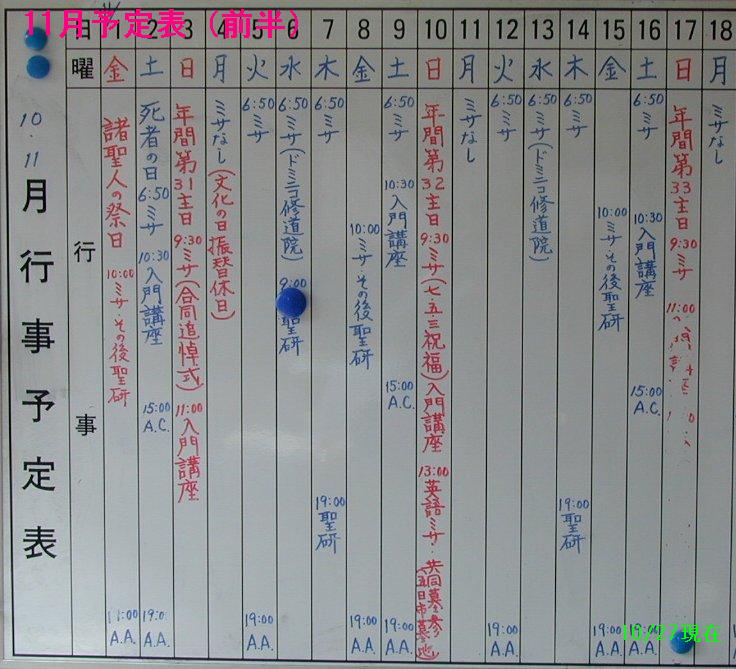 11月予定表（前半）
10・11月行事予定表
日
曜
行事
1
金
諸聖人の祭日
10:00 ミサ・その後聖研
11:00 A.A.
2
土
死者の日 6:50 ミサ
10:30 入門講座
15:00 A.C.
19:00 A.A.
3
日
年間第31主日
9:30 ミサ(合同追悼式)
11:00 入門講座
4
月
ミサなし(文化の日振替休日)
5
火
6:50 ミサ
19:00 A.A.
6
水
6:50 ミサ(ドミニコ修道院)
9:00 聖研
7
木
6:50 ミサ
19:00 聖研
8
金
10:00 ミサ・その後聖研
19:00 A.A.
9
土
6:50 ミサ
10:30 入門講座
15:00 A.C.
19:00 A.A.
10
日
年間第32主日
9:30 ミサ(七・五・三祝福)入門講座
13:00 英語ミサ・共同墓参(五日市墓地)
11
月
ミサなし
12
火
6:50 ミサ
19:00 A.A.
13
水
6:50 ミサ(ドミニコ修道院)
14
木
6:50 ミサ
19:00 聖研
15
金
10:00 ミサ・その後聖研
19:00 A.A.
16
土
6:50 ミサ
10:30 入門講座
15:00 A.C.
A.A.
17
日
年間第33主日
9:30 ミサ
11:00
18
月
ミサなし
10/27現在